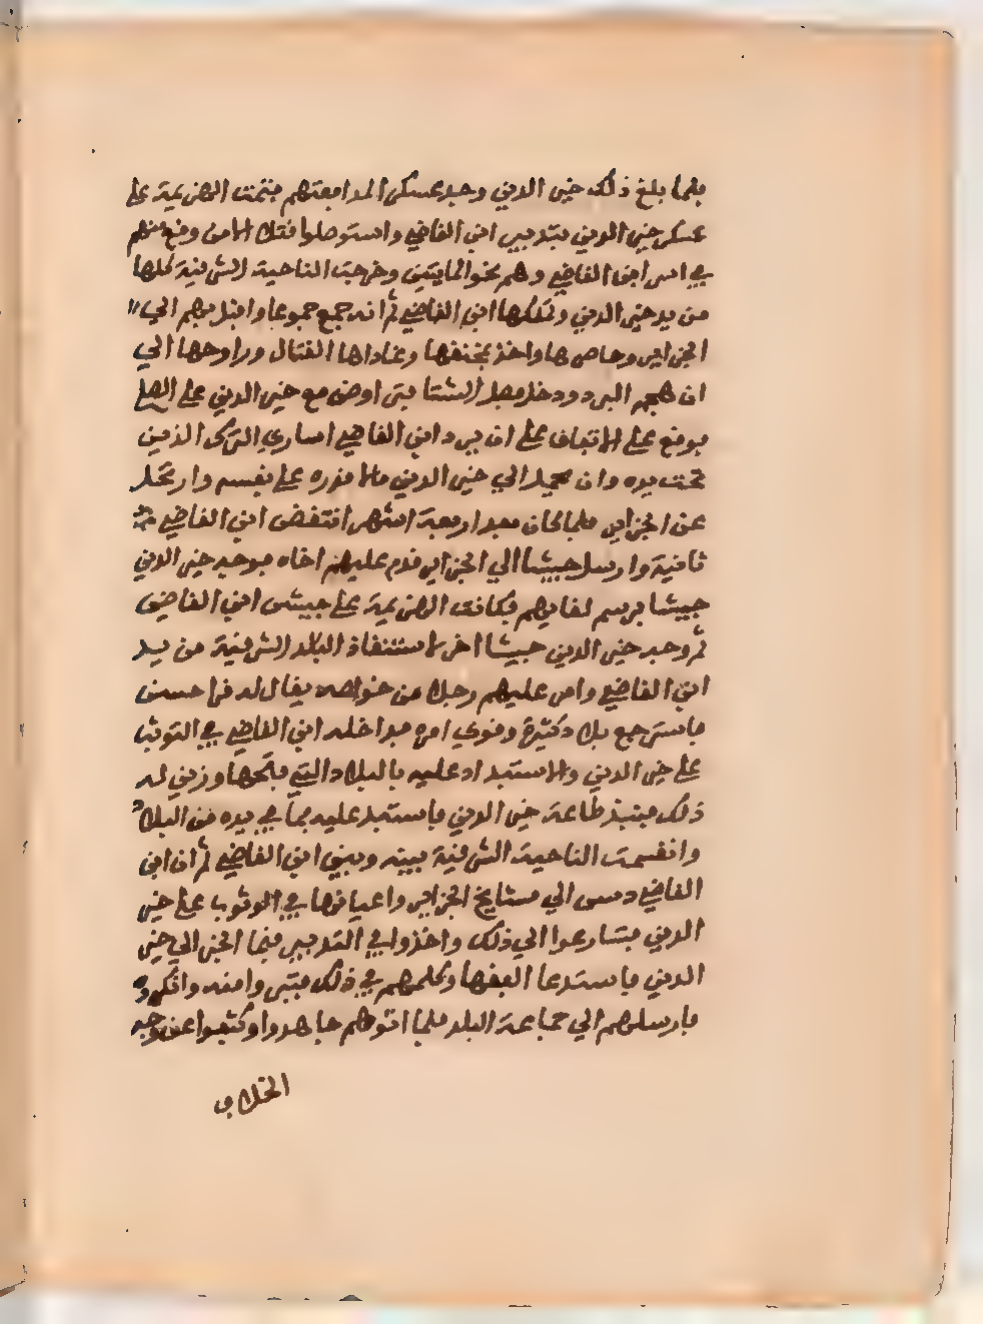 فلما بلغ ذلك خير الدين وجه عسكرا لمدافعتهم فتمت الهزيمة على
عسكر خير الدين بتدبير ابن القاضي واستوصلوا قتلا الا من وقع منهم
في اسر ابن القاضي وهم نحو المايتين وخرجت الناحية الشرقية كلها
من يد خير الدين وتملكها ابن القاضي ثم انه جمع جموعا واقبل بهم الي
الجزاير وحاصرها واخذ بمخنقها وغاداها القتال وراوحها الي
ان هجم البرد ودخل فصل الشتا فتراوض مع خير الدين على الصلح
فوقع على الاتفاق على ان يرد ابن القاضي اساري الترك الذين
تحت يده وان يحمل الي خير الدين مالا قرره على نفسه وارتحل
عن الجزاير فلما كان بعد اربعة اشهر انتقض ابن القاضي
ثانية وارسل جيشا الي الجزاير قدم عليهم اخاه فوجه خير الدين
جيشا برسم لقايهم فكانت الهزيمة على جيش ابن القاضي
ثم وجه خير الدين جيشا اخر لاستنقاذ البلد الشرقية من يد
ابن القاضي وامر عليهم رجلا من خواصه يقال له قرا حسن
فاسترجع بلادا كثيرة وقوي امره فداخله ابن القاضي في التوثب
على خير الدين والاستبداد عليه بالبلاد التي فتحها وزين له
ذلك فنبذ طاعة خير الدين فاستبد عليه بما في يده من البلاد
وانقسمت الناحية الشرقية بينه وبين ابن القاضي ثم ان ابن
القاضي دس الي مشايخ الجزاير واعيانها في الوثوب على خير
الدين فتسارعوا الي ذلك واخذوا في التدبير فنما الخبر الي خير
الدين فاستدعا الفقها وكلمهم في ذلك فتبروا منه وانكروه
فارسلهم الي جماعة البلد فلما اتوهم جاهدوا وكتبوا عن وجه
الخلاف